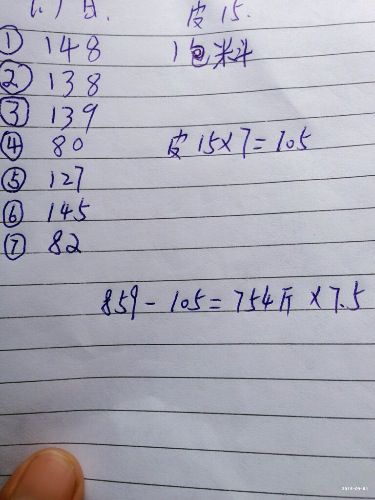 皮15.
① 148 1包米斗
② 138
③ 139
④ 80 皮15×7=105
⑤ 127
⑥ 145
⑦ 82
859-105=754斤×7.5